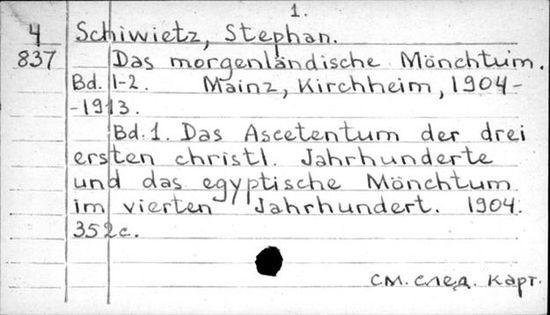 1.
4 Schiwietz, Stephan.
837 Das morgenländische Mönchtum.
Bd. 1-2. Mainz, Kirchheim, 1904-
-1913.
Bd. 1. Das Ascetentum der drei
ersten christl. Jahrhunderte
und das egyptische Mönchtum
im vierten Jahrhundert. 1904.
352c.
см. след. карт.